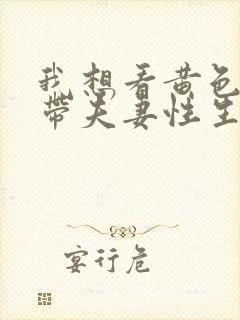 我想看黄色
带夫妻性生
宴行危